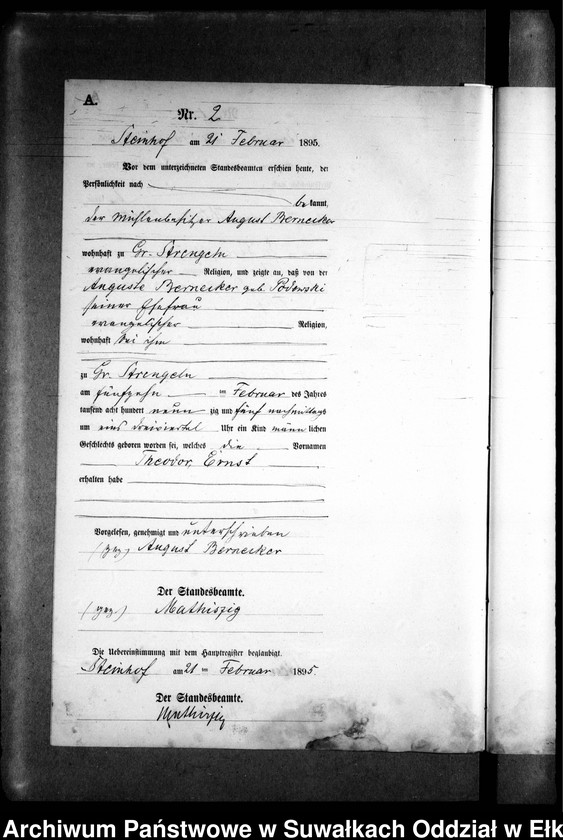 A.
Nr. 2
Steinhof am 21 Februar 1895.
Vor dem unterzeichneten Standesbeamten erschien heute, der
Persönlichkeit nach
be kannt,
der Mühlenbesitzer August Bernecker
wohnhaft zu Gr. Strengeln
evangelischer Religion, und zeigte an, daß von der
Auguste Bernecker geb. Podewski
seiner Ehefrau
evangelischer Religion,
wohnhaft bei ihm
zu Gr. Strengeln
am fünfzehn ten Februar des Jahres
tausend acht hundert neun zig und fünf nachmittags
um eins dreiviertel Uhr ein Kind männ lichen
Geschlechts geboren worden sei, welches die Vornamen
Theodor, Ernst
erhalten habe
Vorgelesen, genehmigt und unterschrieben
(gez) August Bernecker
Der Standesbeamte.
(gez.) Mathiszig
Die Uebereinstimmung mit dem Hauptregister beglaubigt.
Steinhof am 21 ten Februar 1895
Der Standesbeamte.
Mathiszig
Archiwum Państwowe w Suwałkach Oddział w Ełk